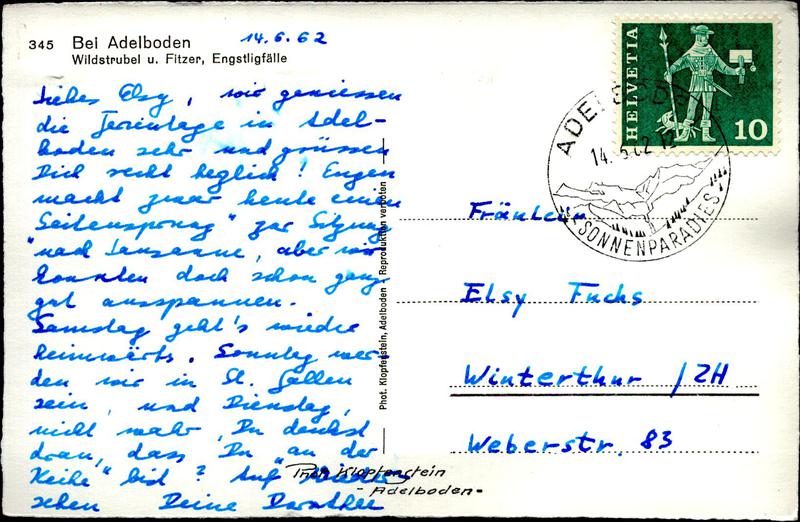 345 Bei Adelboden
Wildstrubel u. Fitzer, Engstligfälle
14.6.62
Liebes Elsy, wir geniessen
die Ferientage in Adel-
boden sehr und grüssen
Dich recht herzlich! Eugen
macht zwar heute einen
"Seitensprung" zur Sitzung
nach Lausanne, aber wir
konnten doch schon ganz
gut ausspannen.
Samstag geht's wieder
heimwärts. Sonntag wer-
den wir in St. Gallen
sein, und Dienstag,
nicht wahr, Du denkst
dran, dass Du "an der
Reihe" bist? Auf Wieder-
sehen Deine Dorothee
Phot. Klopfenstein, Adelboden - Reproduktion verboten
Phot. Klopfenstein
- Adelboden -
HELVETIA
10
ADELBODEN
14.6.62
SONNENPARADIES
Fräulein
Elsy Fuchs
Winterthur / ZH
Weberstr. 83